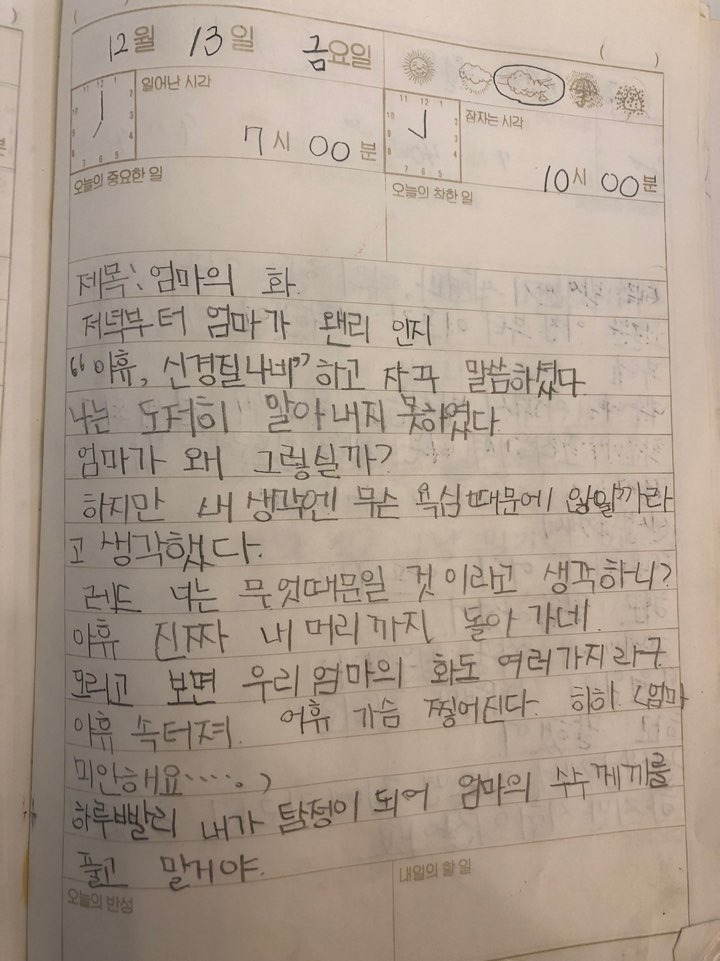 12월 13일 금요일 ( )
일어난 시각
7시 00분
잠자는 시각
10시 00분
오늘의 중요한 일
오늘의 착한 일
제목: 엄마의 화.
저녁부터 엄마가 왠리 인지
“아휴, 신경질나비” 하고 자꾸 말씀하셨다.
나는 도저히 알아내지 못하였다.
엄마가 왜 그렇실까?
하지만 내 생각엔 무슨 욕심 때문에 않일까라
고 생각했다.
레드 너는 무엇때문일 것 이라고 생각하니?
아휴 진짜 내 머리까지 돌아 가네.
모리고 보면 우리 엄마의 화도 여러가지라구
아휴 속터져. 어휴 가슴 찢어진다. 히히. (엄마
미안해요‥‥‥.)
하루빨리 내가 탐정이 되어 엄마의 수수께끼를
풀고 말거야.
오늘의 반성
내일의 할 일